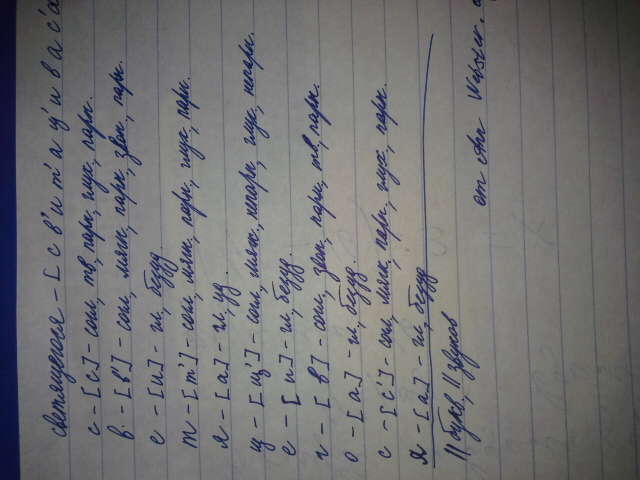 светящегося - [ с в' и т' а щ' и в а с' а
с - [с] - согл, тв, парн, глух, парн.
в - [в'] - согл, мягк, парн, звон, парн.
е - [и] - гл, безуд.
т - [т'] - согл, мягк, парн, глух, парн.
я - [а] - гл, уд.
щ - [щ'] - согл, мягк, непарн, глух, непарн.
е - [и] - гл, безуд.
г - [в] - согл, звон, парн, тв, парн.
о - [а] - гл, безуд.
с - [с'] - согл, мягк, парн, глух, парн.
я - [а] - гл, безуд
11 букв, 11 звуков
от Ann Webster.